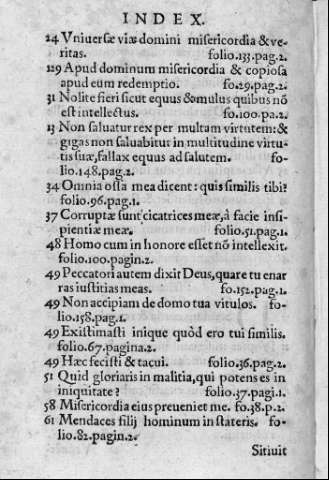 INDEX.
24 Vniuersæ viæ domini misericordia & ve-
ritas. folio.133.pag.2.
129 Apud dominum misericordia & copiosa
apud eum redemptio. fo.29.pag.2.
31 Nolite fieri sicut equus & mulus quibus nõ
est intellectus. fo.100.pa.2.
13 Non saluatur rex per multam virtutem: &
gigas non saluabitur in multitudine virtu-
tis suæ, fallax equus ad salutem. fo-
lio.148.pag.2.
34 Omnia ossa mea dicent: quis similis tibi?
folio.96.pag.1.
37 Corruptæ sunt cicatrices meæ, à facie insi-
pientiæ meæ. folio.51.pag.1.
48 Homo cum in honore esset nõ intellexit.
folio.100.pagin.2.
49 Peccatori autem dixit Deus, quare tu enar
ras iustitias meas. fo.152.pag.1.
49 Non accipiam de domo tua vitulos. fo-
lio.158.pag.1.
49 Existimasti inique quòd ero tui similis.
folio.67.pagina.2.
49 Hæc fecisti & tacui. folio.36.pag.2.
51 Quid gloriaris in malitia, qui potens es in
iniquitate? folio.37.pagi.1.
58 Misericordia eius preueniet me. fo.38.p.2.
61 Mendaces filij hominum in stateris. fo-
lio.82.pagin.2.
Sitiuit